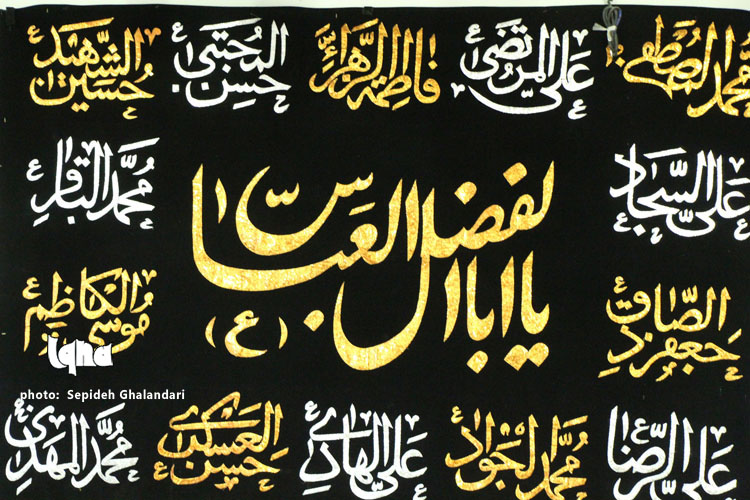 محمد المصطفی
علی المرتضی ع
فاطمة الزهراء ع
حسن المجتبی ع
حسین الشهید ع
علی السجاد ع
محمد الباقر ع
یا اباالفضل العباس
(ع)
جعفر الصادق ع
موسی الکاظم ع
علی الرضا ع
محمد الجواد ع
علی الهادی ع
حسن العسکری ع
محمد المهدی ع
iqna
photo: Sepideh Ghalandari